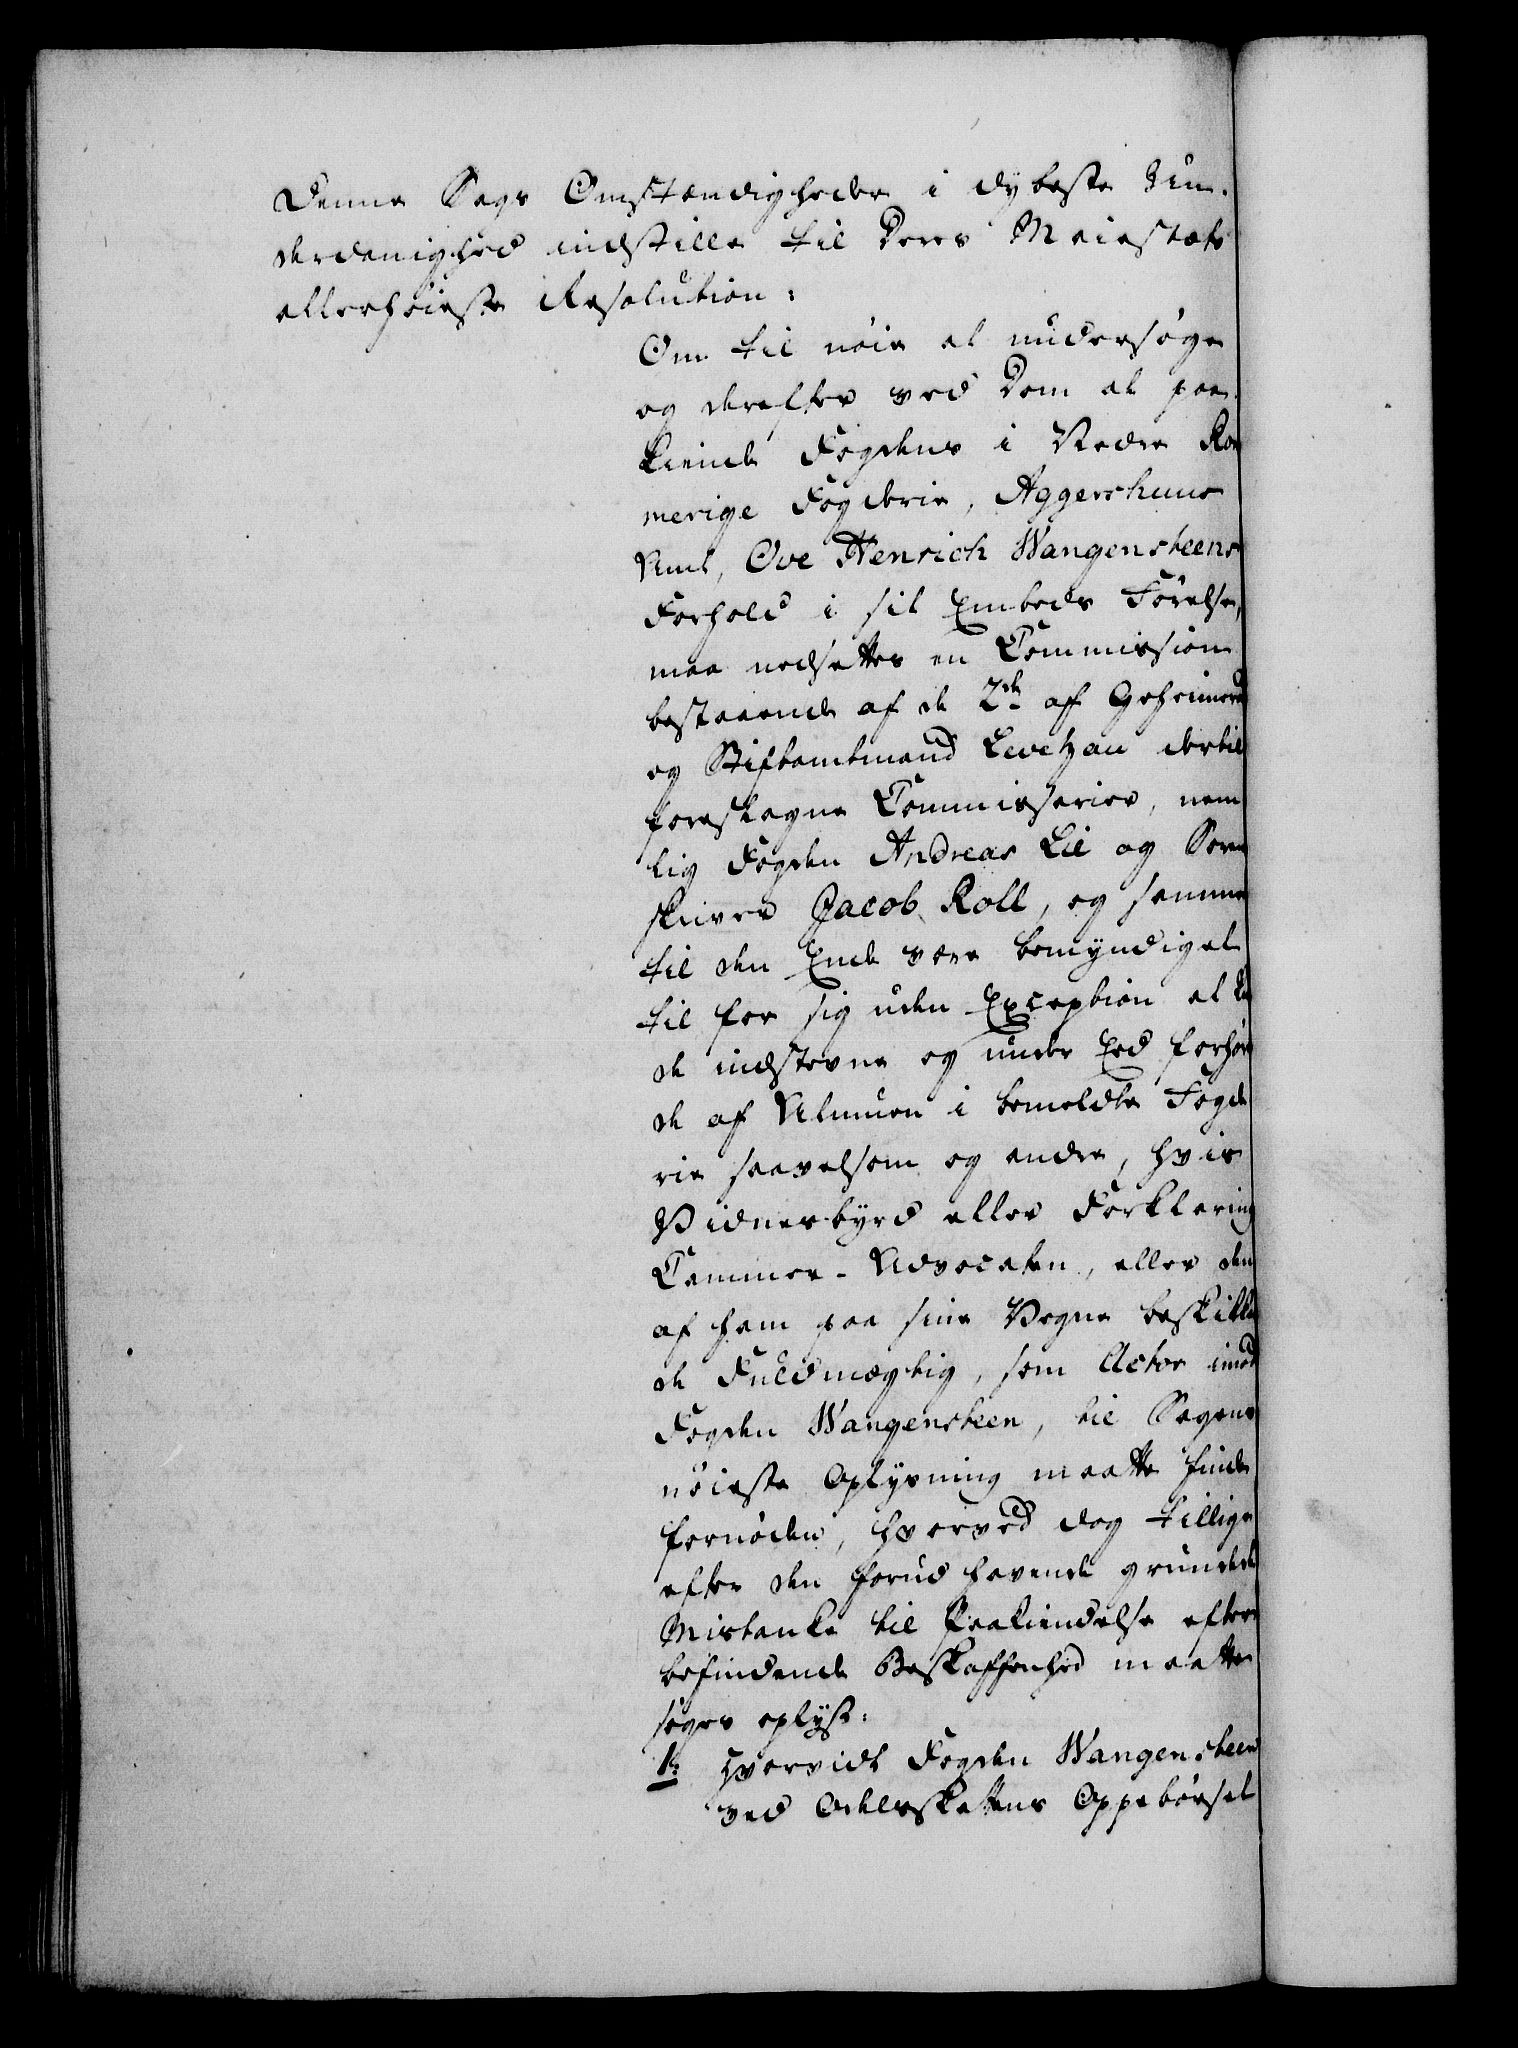 Denne Sags Omstændigheder i dybeste Un-
derdanighed indstille til Deres Maiestæts
allerhøieste Resolution:
Om til nøie at undersøge
og derefter ved Dom at paa-
kiende Fogdens i Nedre Ro
merige Fogderie, Aggershuus
Amt, Ove Henrich Wangensteens
Forhold i sit Embeds Førelse,
maa nedsættes en Commission
bestaaende af de 2de af Geheimeraad
og Stiftamtmand Levetzau dertil
foreslagne Commissarier, nem
lig Fogden Andreas Lie og Soren
skriver Jacob Roll, og samme
til den Ende være bemyndiget
til for sig uden Exception at la
de indstevne og under Eed forhøre
de af Almuen i bemeldte Fogde
rie saavelsom og andre, hvis
Vidnesbyrd eller Forklaring
Cammer-Advocaten, eller den
af ham paa sine Vegne beskikke
de Fuldmægtig, som Actor imod
Fogden Wangensteen, til Sagens
nøieste Oplysning maatte finde
fornøden, hvorved dog tillige
efter den forud havende grundede
Mistanke til Paakiendelse efter
befindende Beskaffenhed maatte
søges oplyst:
1: Hvorvidt Fogden Wangensteen
ved Odelsskattens Oppebørsel